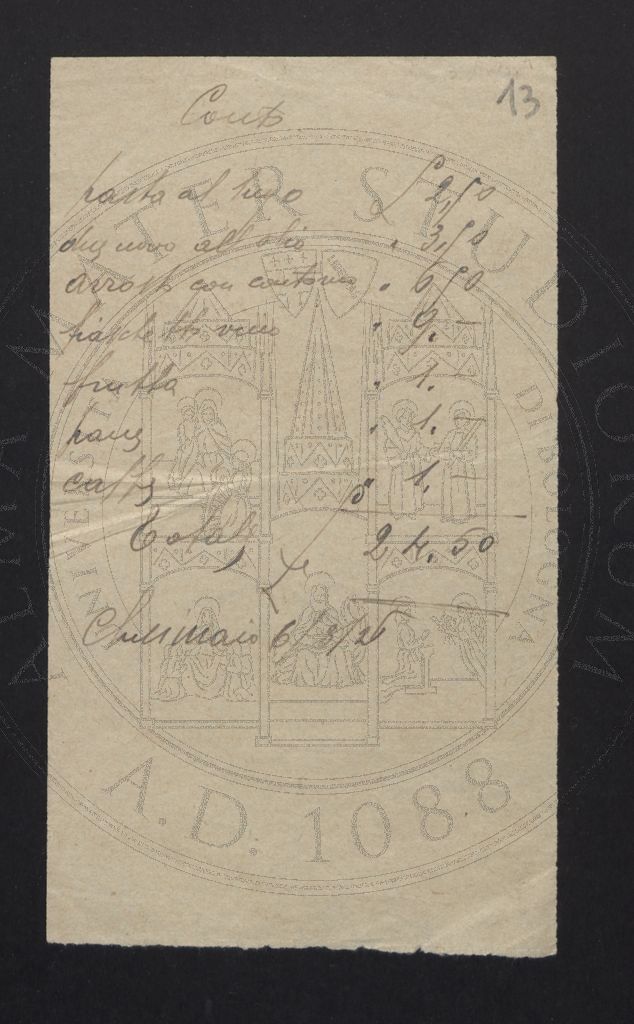 13
Conto
pasta al sugo £ 2,50
due uova all'olio " 3,50
arrosto con contorno " 6,50
fiaschetto vino " 9. —
frutta " 1. —
pane " 1. —
caffè " 1. —
Totale £ 24.50
6/3/26
ALMA MATER STUDIORUM
UNIVERSITÀ DI BOLOGNA
A.D. 1088